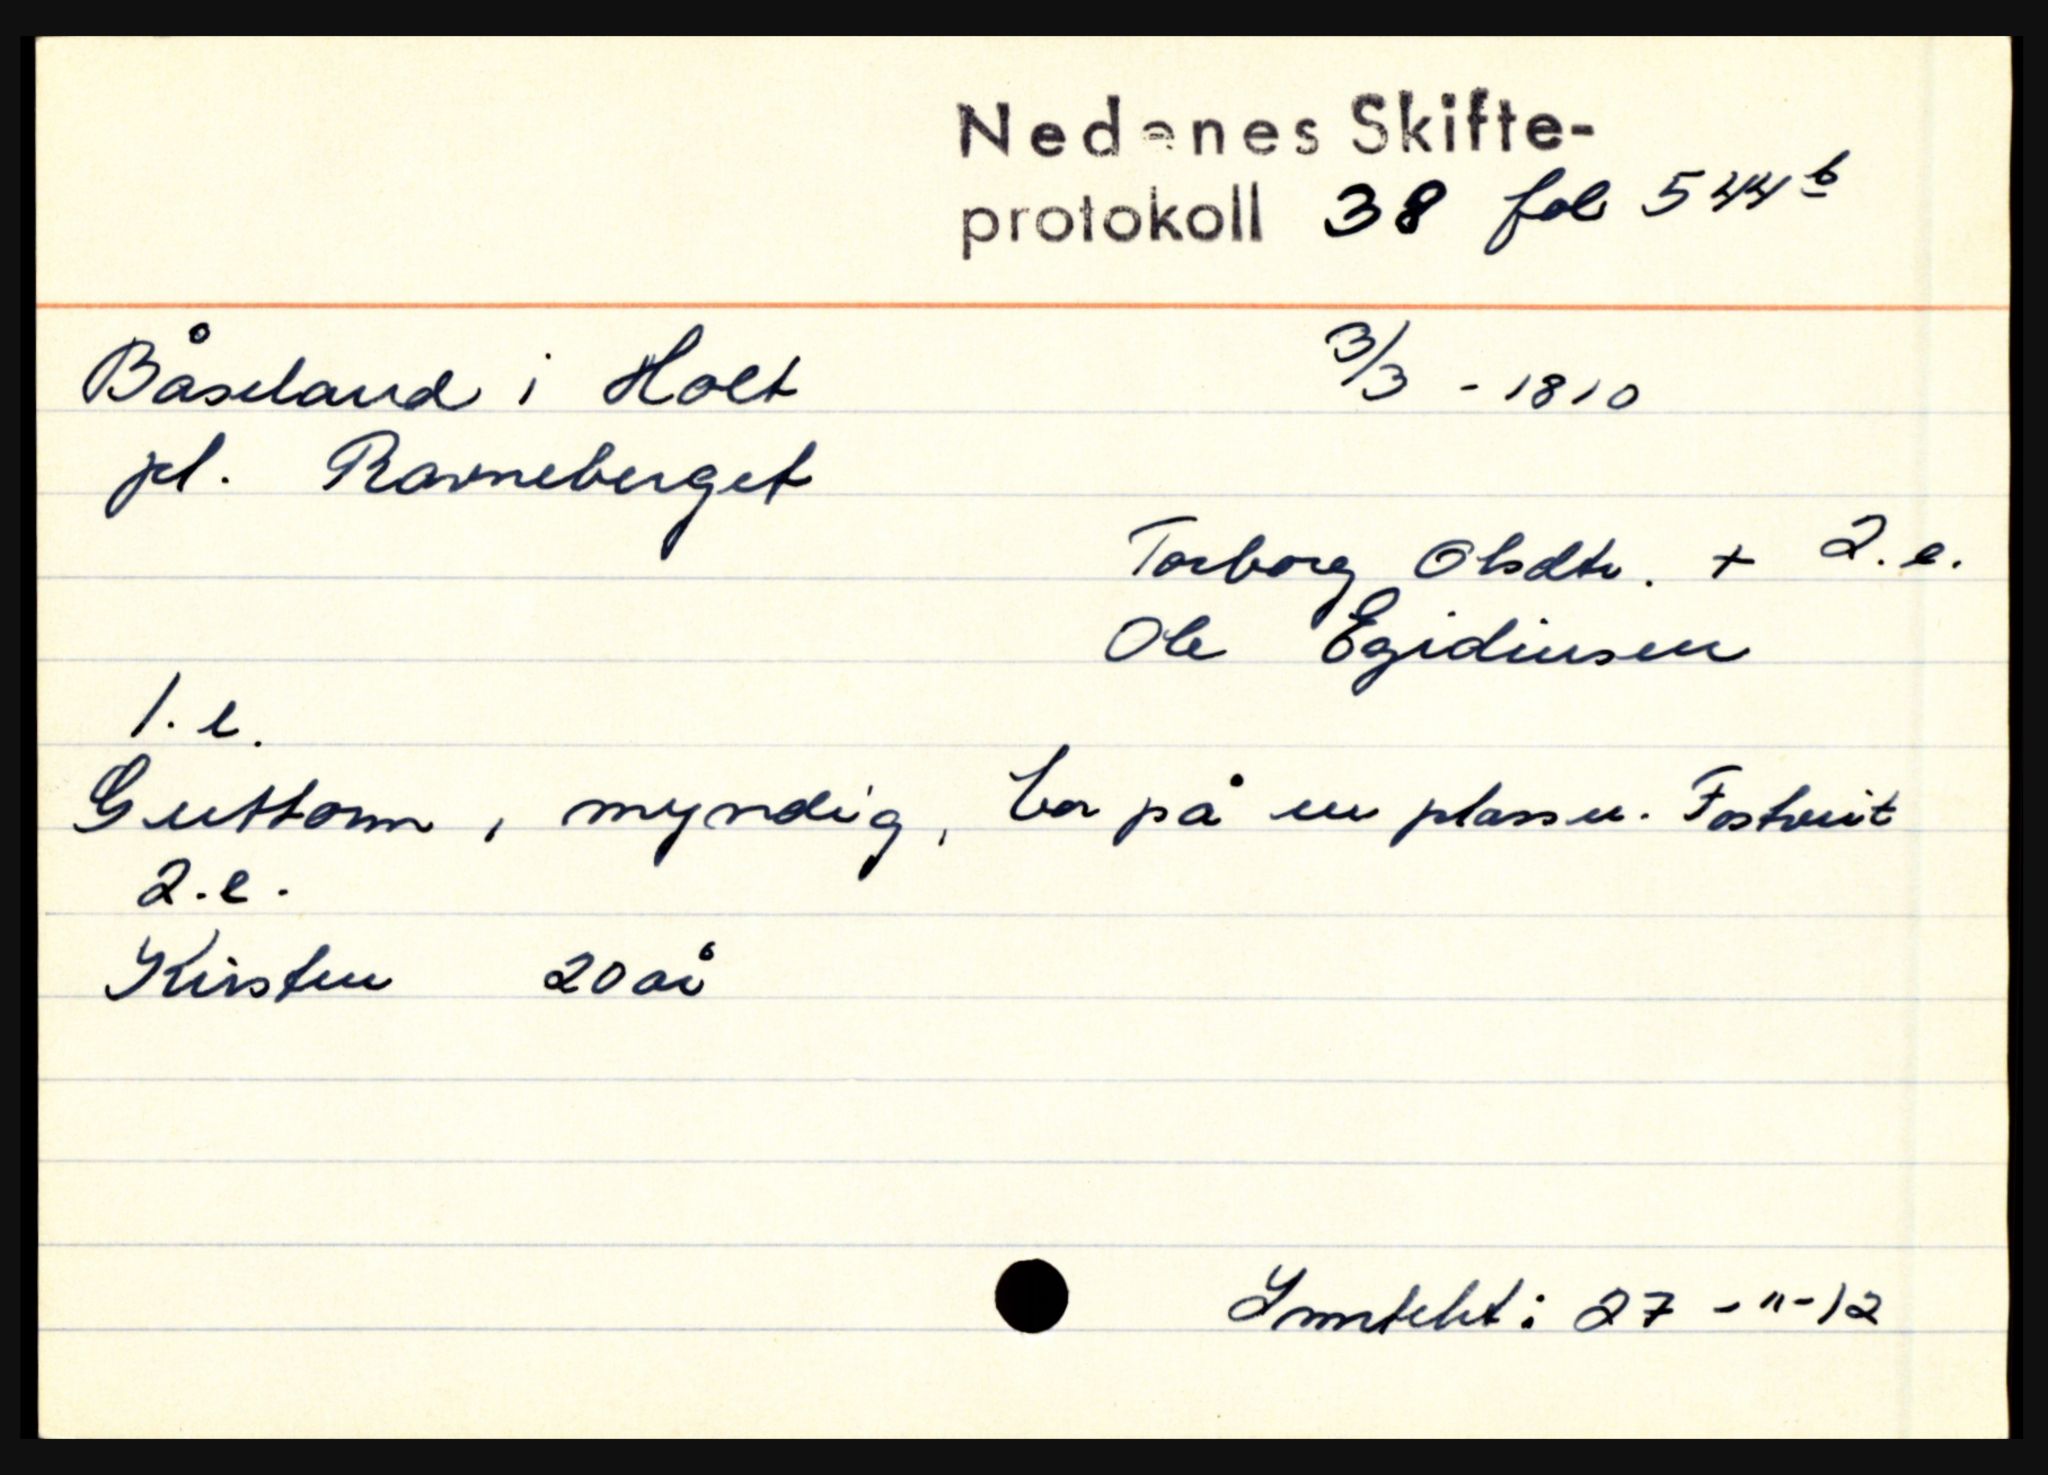 Nedenes Skifte-
protokoll 38 fol 544b
Båseland i Holt 3/3 - 1810
pl. Ravneberget
Torborg Olsdtr. + 2.e.
Ole Egidiusen
1.e.
Guttorm, myndig, bor på en plass u. Fostveit
2.e.
Kirsten 20 år
Inntekt: 27 - " - 12